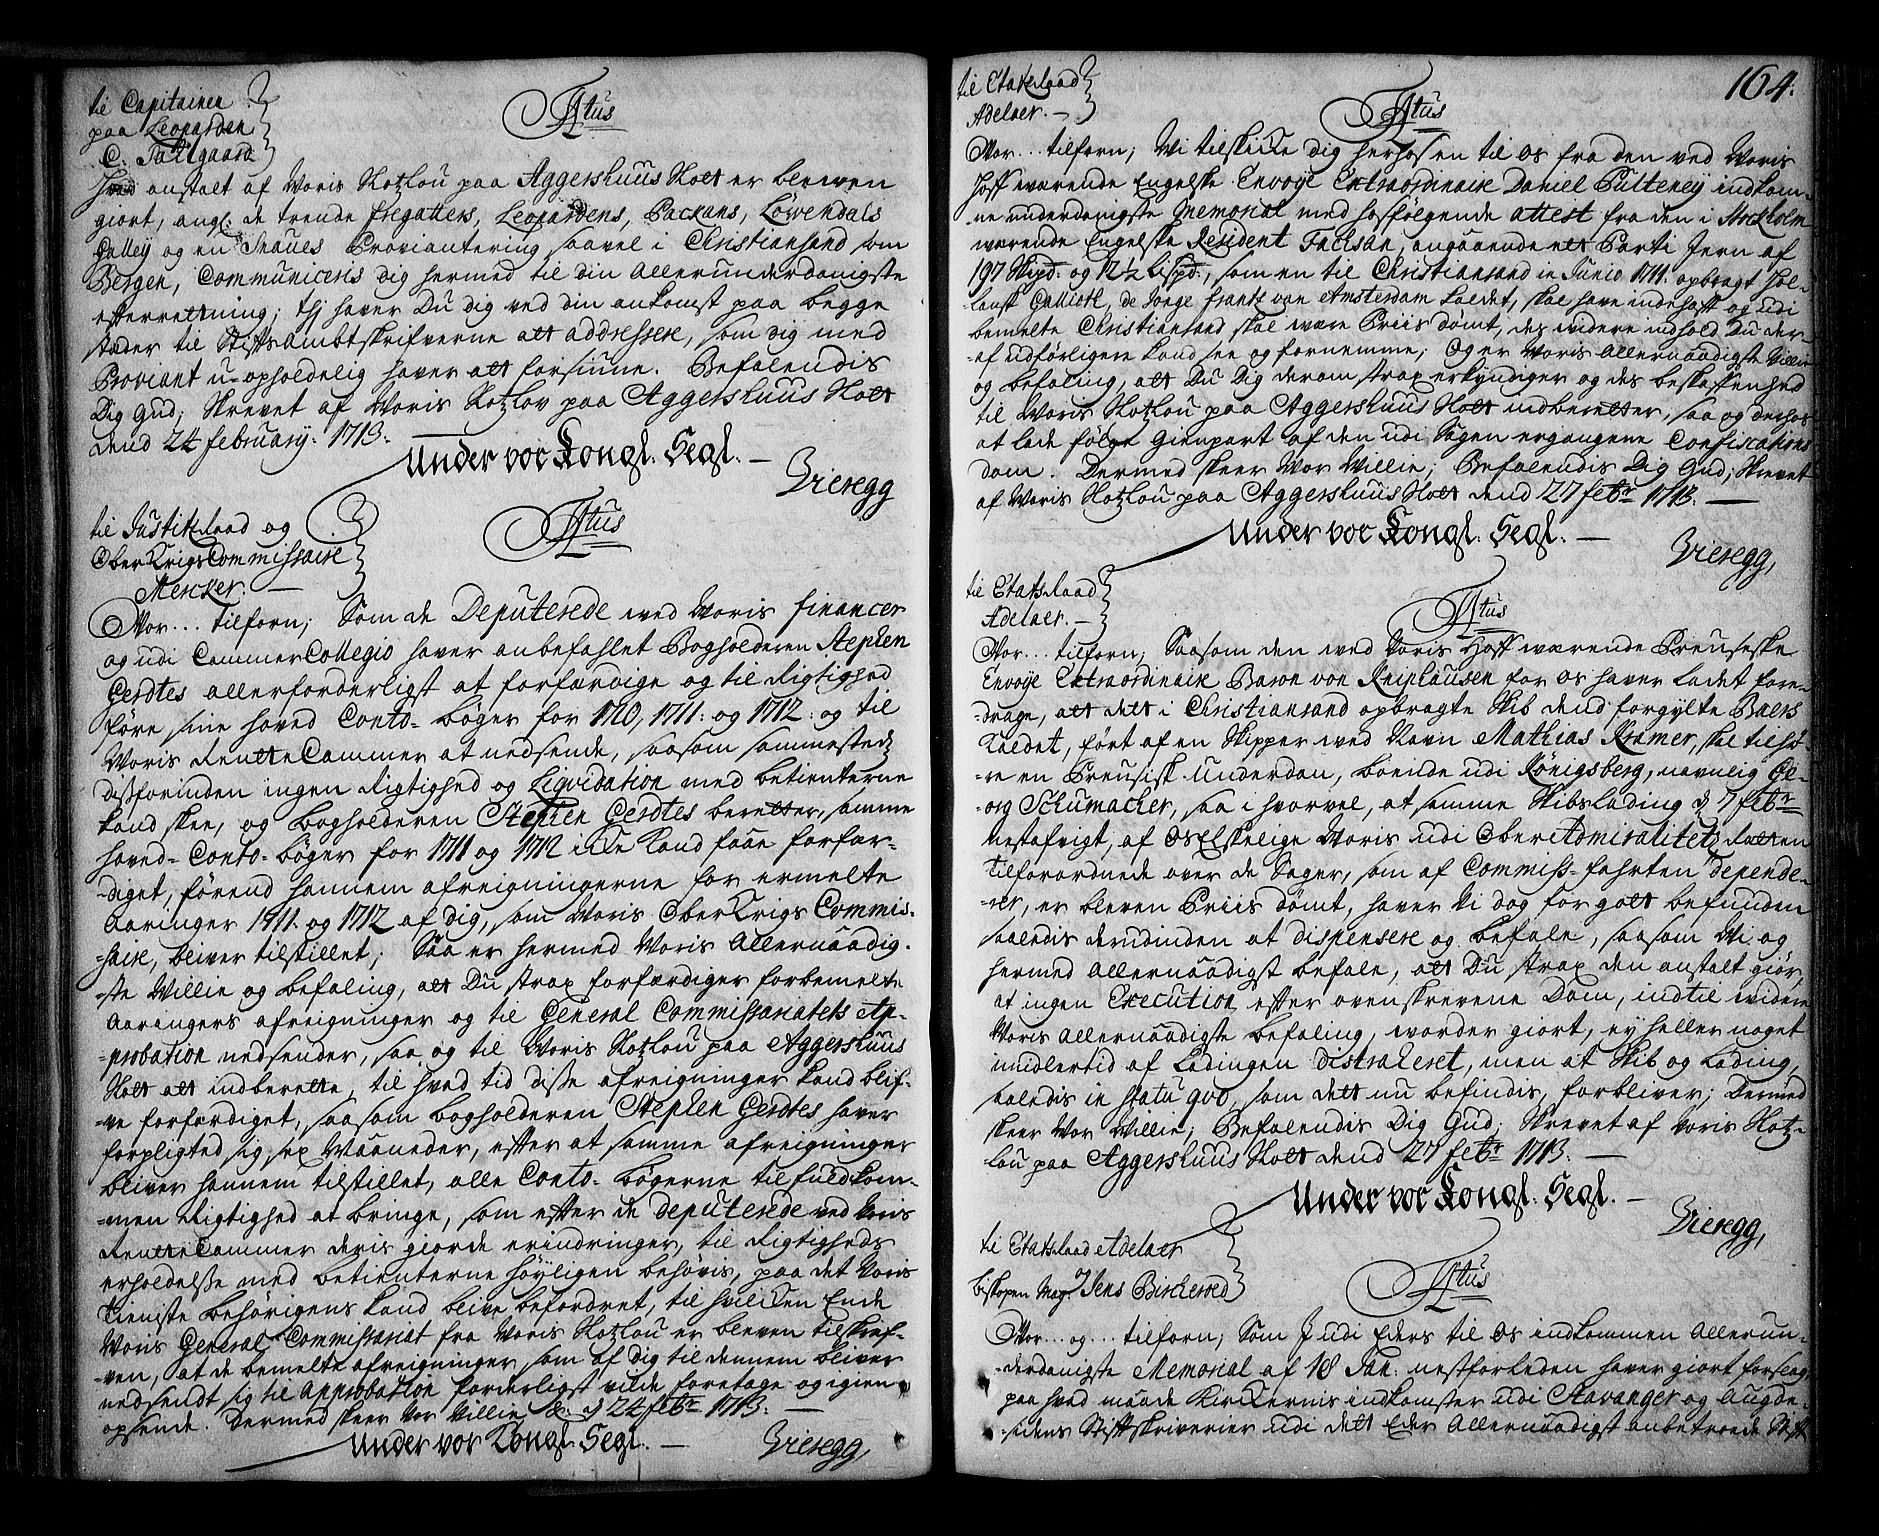 til Capitainen
paa Leoparden
C. Paulgaard
Ftus
Hvad anstalt af Voris Slotzlou paa Aggershuus Slott er blewen
giort, angl: de trende fregatters, Leopardens, Packans, Løwendals
Galley og en Snaues Proviantering saavel i Christiansand som
Bergen, Communiceris dig hermed til din Allerunderdanigste
efterretning; thj hawer Du dig ved din ankomst paa begge
stæder til Stiftsambtskrifverne att addressere, som dig med
Proviant u-opholdelig hawer att forsiune. Befalendis
Dig Gud; Skrevet af Voris Slotzlov paa Aggershuus Slott
dend 24 february: 1713.
Under vor Kongl. Segl.
Vieregg
til Justitzraad og
Ober Krigs Commissaire
Mercker.
Ftus
Wor... tilforn; Som de Deputerede wed Voris financer
og udi Cammer Collegio hawer anbefahlet Bogholderen Stephen
Gerdtes allerforderligst at forfærdige og til Rigtighed
føre sine hoved Conto- bøger for 1710, 1711: og 1712: og til
Voris Rentte Cammer at nedsende, saasom sammestedz
dessforinden ingen Rigtighed og Liqvidation med betienterne
kand skee, og bogholderen Stephen Gerdtes beretter, samme
hoved- Conto- bøger for 1711 og 1712 icke kand faae forfær-
-diget, førend hannem afreigningerne for ermelte
Aaringer 1711. og 1712 af dig, som Voris Ober Krigs Commis-
-saire, bliver tilstillet; Saa er hermed Voris Allernaadig-
-ste Willie og befaling, att Du strax forfærdiger forbemelte
Aaringers afreigninger og til General Commissariatets Ap-
-probation nedsender, saa og til Voris Slotzlou paa Aggershuus
Slott att indberette, til hvad tid disse afreigninger kand blif-
-ve forfærdiget, saasom bogholderen Stephen Gerdtes hawer
forpligted sig, sex Maaneder, efter at samme afreigninger
bliver hannem tilstillet, alle Conto- bøgerne til fuldkom-
-men Rigtighed at bringe, som efter de deputerede ved Voris
Rentte Cammer deris giorde erindringer, til Rigtigheds
erholdelse med betienterne høyligen behøvis, paa det Voris
tieniste behørigens kand blive befordret, til hvilcken Ende
Voris General Commissariat fra Voris Slotzlou er bleven tilskref-
-ven, at de bemelte afreigninger, som af dig til dennem bliver
nedsendt sig til Approbation forderligst vilde foretage og igien
opsende. Dermed skeer Vor Villie &c. d 24 febr 1713.
Under vor Kongl. Segl.
Vieregg,
164.
til Etatsraad
Adelaer.
Ftus
Wor... tilforn; Wi tilskicke dig herhos en til os fra den ved Voris
Hoff wærende Engelske Envoye Extraordinaire Daniel Pulteney indkom-
ne underdanigste Memorial med hosfølgende attest fra den i Stockholm
wærende Engelske Resident Jackson, angaaende ett Parti Jern af
197 Skpd. og 12½ Lispd., som en til Christiansand in Junio 1711. opbragt Hol-
landsk Galliott, de Jonge Frantz von Amsterdam kaldet, skal have indehafft og udi
bemelte Christiansand skal wære Priis dømt, des widere indhold Du der-
-af udførligere kand see og fornemme; Og er Voris Allernaadigste Villie
og befaling, att Du Dig derom strax erkyndiger og des beskaffenhed
til Voris Slotzlou paa Aggershuus Slott indberetter, saa og derhos
at lade følge Gienpart af den udi Sagen ergangene Confiscations
dom. Dermed skeer Vor Willie; Befalendis Dig Gud; Skrevet
af Voris Slotzlou paa Aggershuus Slott dend 27 febr 1713.
Under vor Kongl. Segl.
Vieregg,
til Etatsraad
Adelaer.
Ftus
Wor... tilforn; Saasom den wed Voris Hoff wærende Preuseske
Envoye Extraordinaire Baron von Kniphausen for os hawer ladet fore-
-drage, att dett i Christiansand opbragte Skib dend forgylte Baers
kaldet, ført af en Skipper wed Navn Mathias Kramer, skal tilhø-
-re en Preusisk underdan, boende udi Königsberg, navnlig Ge-
-org Schumacher, saa i hvorvel, at samme Skibs lading d 7 febr
nestafvigt, af Os Elskelige Voris udi Ober Admiralitetz Retten
Tilforordnede over de Sager, som af Commiss- fahrten depende-
-rer, er bleven Priis dømt, hawer Vi dog for gott befunden
saaledis derudinden at dispensere og befale, saasom Vi og
hermed Allernaadigst befale, att Du strax den anstalt giør,
at ingen Execution efter ovenskrevene Dom, indtil widere
Voris Allernaadigste befaling, worder giort, ey heller noget
midlertid af Ladingen distraheret, men at Skib og Lading,
saaledis in statu qvo, som dett nu befindis, forbliver; Dermed
skeer Vor Willie; Befalendis Dig Gud; Skrevet af Voris Slotz-
lou paa Aggershuus Slott dend 27 febr 1713.
Under vor Kongl. Segl.
Vieregg,
til Etatsraad Adelaer
og
biskopen Mag. Jens Bircherod
Ftus
Wor... og... tilforn; Som J udi Eders til Os indkommen Allerun-
-derdanigste Memorial af 18 Jan: nestforleden hawer giort forslag,
paa hvad maade Kirckernis indkomster udi Stavanger og Augde-
-sidens Stiftskriverier udi dett Eder Allernaadigst anbetroede Stift